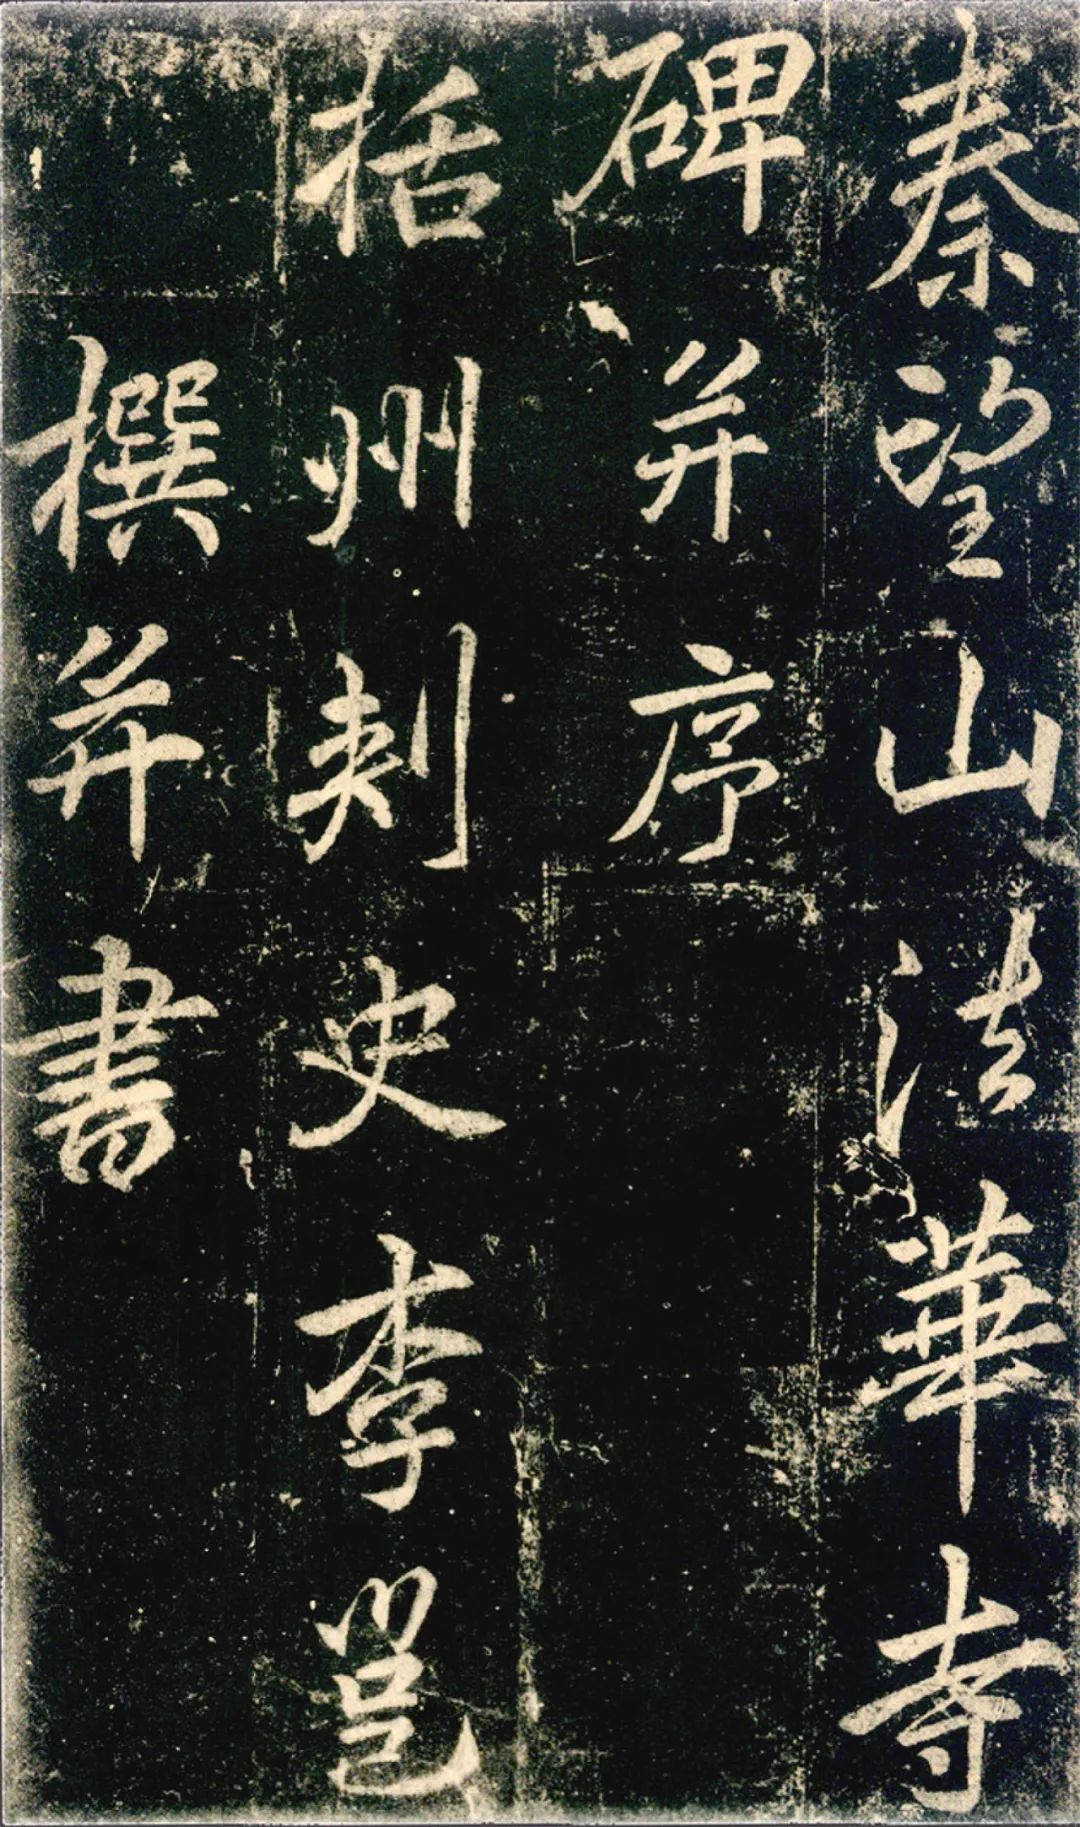 秦望山法華寺
碑并序
括州刾史李邕
撰并書